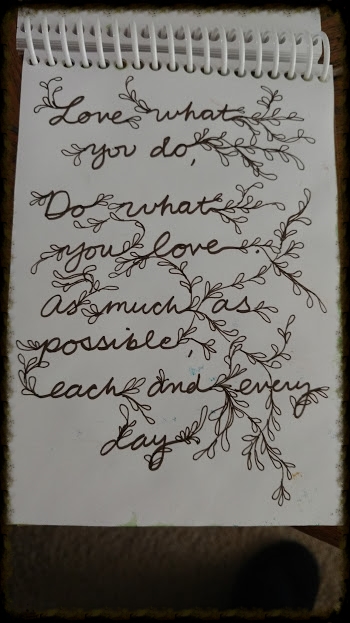 Love what
you do,
Do what
you love.
As much as
possible,
each and every
day